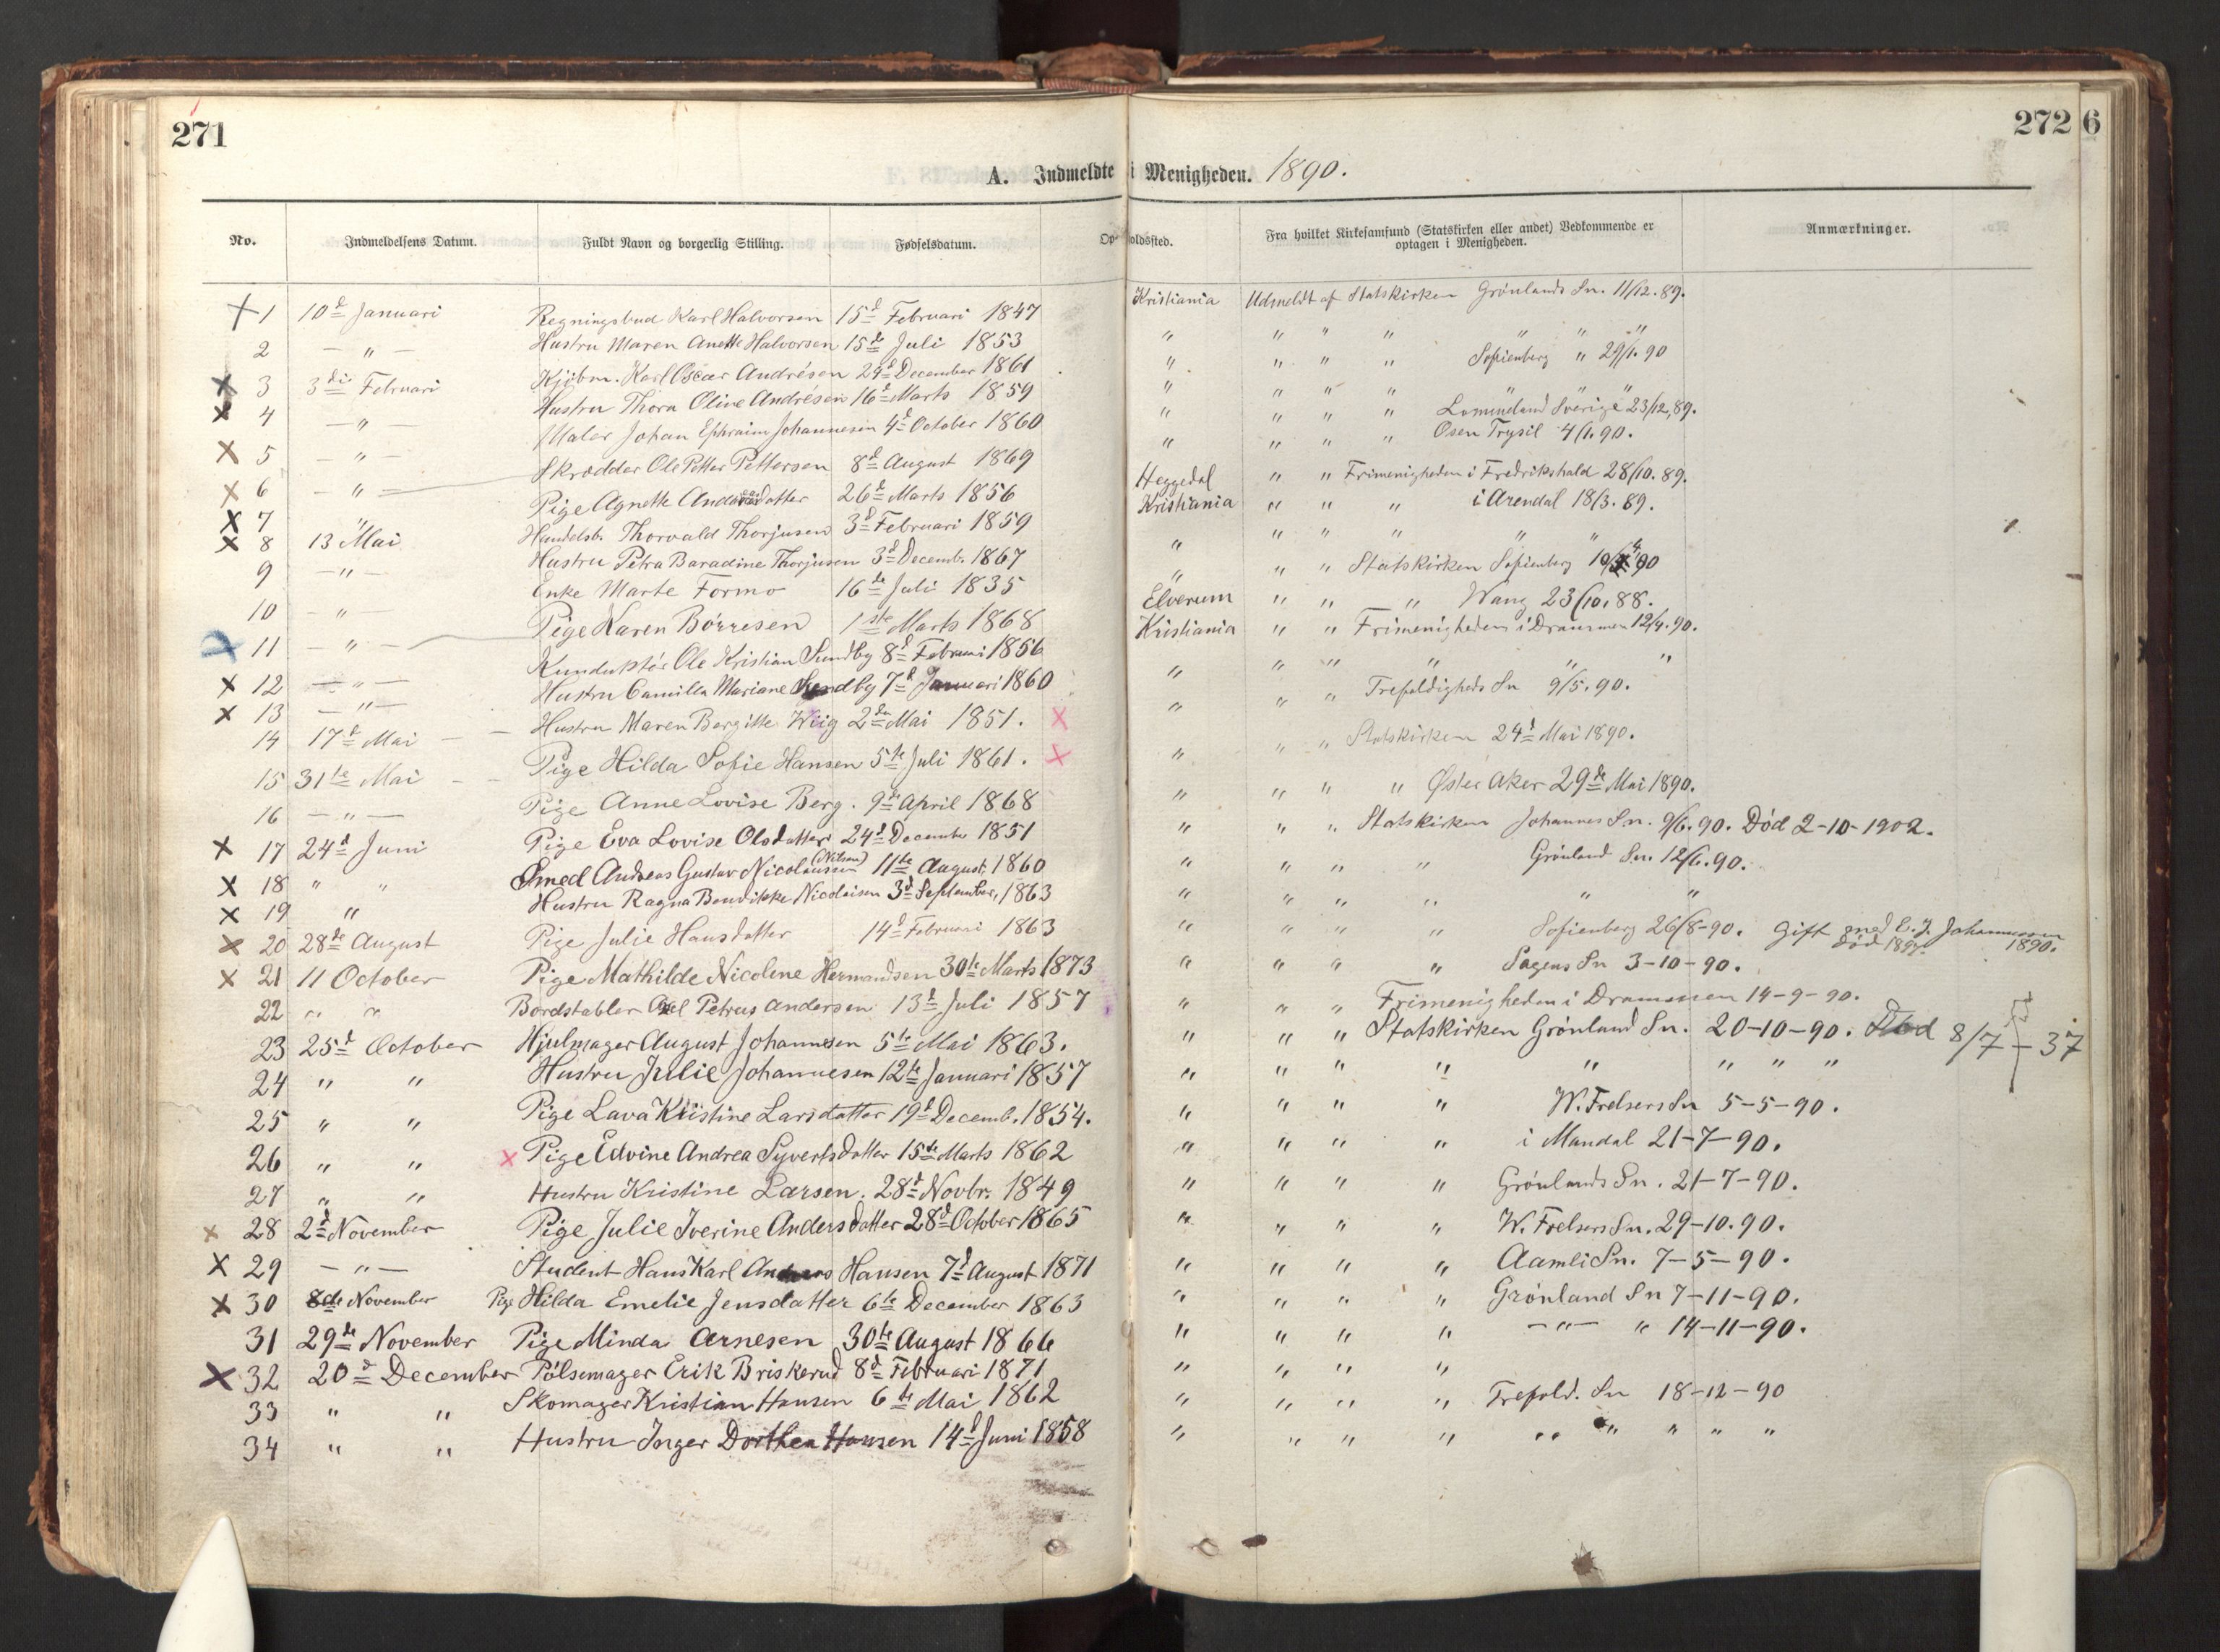 271
272 6
A. Indmeldte i Menigheden. 1890.
No. Indmeldelsens Datum. Fuldt Navn og borgerlig Stilling. Fødselsdatum. Opholdssted. Fra hvilket Kirkesamfund (Statskirken eller andet) Vedkommende er optagen i Menigheden. Anmærkninger.
X 1 10d Januari Regningsbud Karl Halvorsen 15d Februari 1847 Kristiania Udmeldt af Statskirken Grønlands Sn. 11/12.89.
2 — " — Hustru Maren Anette Halvorsen 15de Juli 1853 " " " " " " "
X 3 3die Februari Kjöbm. Karl Oscar Andrésen 29d December 1861 " " " " Sofienberg " 29/1.90
X 4 — " — Hustru Thora Oline Andrésen 16d Marts 1859 " " " " " " "
X 5 — " — Maler Johan Ephraim Johannesen 4d October 1860 " " " " Sverige 23/12,89.
X 6 — " — Skrædder Ole Petter Pettersen 8d August 1869 " " " " Osen Trysil 4/1.90.
X 7 " Pige Agnette Andersdatter 26d Marts 1856 Heggedal " " Frimenigheden i Fredrikshald 28/10.89.
X 8 13 Mai Handelsb. Thorvald Thorjusen 3d Februari 1859 Kristiania " " " i Arendal 18/3.89.
9 — " — Hustru Petra Baradine Thorjusen 3d Decemb. 1867 " " " " " "
10 — " — Enke Marte Formo 16de Juli 1835 " " " Statskirken Sofienberg 10/4 90
X 11 — " — Pige Karen Börresen 1ste Marts 1868 Elverum " " " Wang 23/10.88.
X 12 — " — Kunduktör Ole Kristian Sundby 8d Februari 1856 Kristiania " " Frimenigheden i Drammen 12/4.90.
X 13 — " — Hustru Camilla Mariane Sundby 7d Januari 1860 " " " " " "
14 17d Mai — — Hustru Maren Bergitte Wiig 2den Mai 1851. X " " " Trefoldigheds Sn 9/5.90.
15 31te Mai — — Pige Hilda Sofie Hansen 5te Juli 1861. X " " " Statskirken 24d Mai 1890.
16 — " — Pige Anne Lovise Berg. 9de April 1868 " " " " Øster Aker 29de Mai 1890.
X 17 24d Juni Pige Eva Lovise Olsdatter 24d Decembr 1851 " " " Statskirken Johannes Sn. 9/6.90. Död 2-10-1902.
X 18 " " Smed Andreas Gustav Nicolaissen (Nilsen) 11te August 1860 " " " " Grönland Sn. 12/6.90.
X 19 " Hustru Ragna Bendikke Nicolaisen 3d September, 1863 " " " " " "
X 20 28de August Pige Julie Hansdatter 14d Februari 1863 " " " " Sofienberg 26/8-90. Gift med E. J. Johannessen 1890. död 1897.
X 21 11 October Pige Mathilde Nicoline Hermandsen 30te Marts 1873 " " " " Sagens Sn 3-10-90.
22 " " Bordstabler Axel Petrus Andersen 13d Juli 1857 " " " Frimenigheden i Drammen 14-9-90.
23 25d October Hjulmager August Johannesen 5te Mai 1863. " " " Statskirken Grønland Sn. 20-10-90. Död 8/7-37
24 " " Hustru Julie Johannesen 12te Januari 1857 " " " " " " " "
25 " " Pige Lava Kristine Larsdatter 19d Decemb. 1854. " " " " W. Frelsers Sn 5-5-90.
26 " " X Pige Edvine Andrea Syvertsdatter 15de Marts 1862 " " " " i Mandal 21-7-90.
27 " " Hustru Kristine Larsen. 28d Novbr. 1849 " " " " Grönlands Sn. 21-7-90.
X 28 2d November Pige Julie Iverine Andersdatter 28d October 1865 " " " " W. Frelsers Sn. 29-10.90.
X 29 — " — Student Hans Karl Andreas Hansen 7d August 1871 " " " " Aamli Sn. 7-5-90.
X 30 8de November Pige Hilda Emelie Jensdatter 6te December 1863 " " " " Grönland Sn 7-11-90.
31 29de November Pige Minda Arnesen 30te August 1866 " " " " — " — " 14-11-90.
X 32 20d December Pölsemager Erik Briskerud 8d Februari 1871 " " " "
33 " " Skomager Kristian Hansen 6te Mai 1862 " " " " Trefold. Sn 18-12-90
34 " " Hustru Inger Dorthea Hansen 14d Juni 1858 " " " " " " " " "